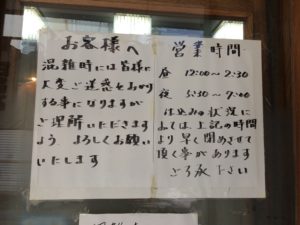 お客様へ
混雑時には皆様に
大変ご迷惑をおかけ
する事になりますが
ご理解いただきます
よう よろしくお願い
いたします
営業時間
昼 12:00〜2:30
夜 5:30〜9:00
仕込みの状況に
よっては上記の時間
より早く閉めさせて
頂く事があります
ご了承下さい